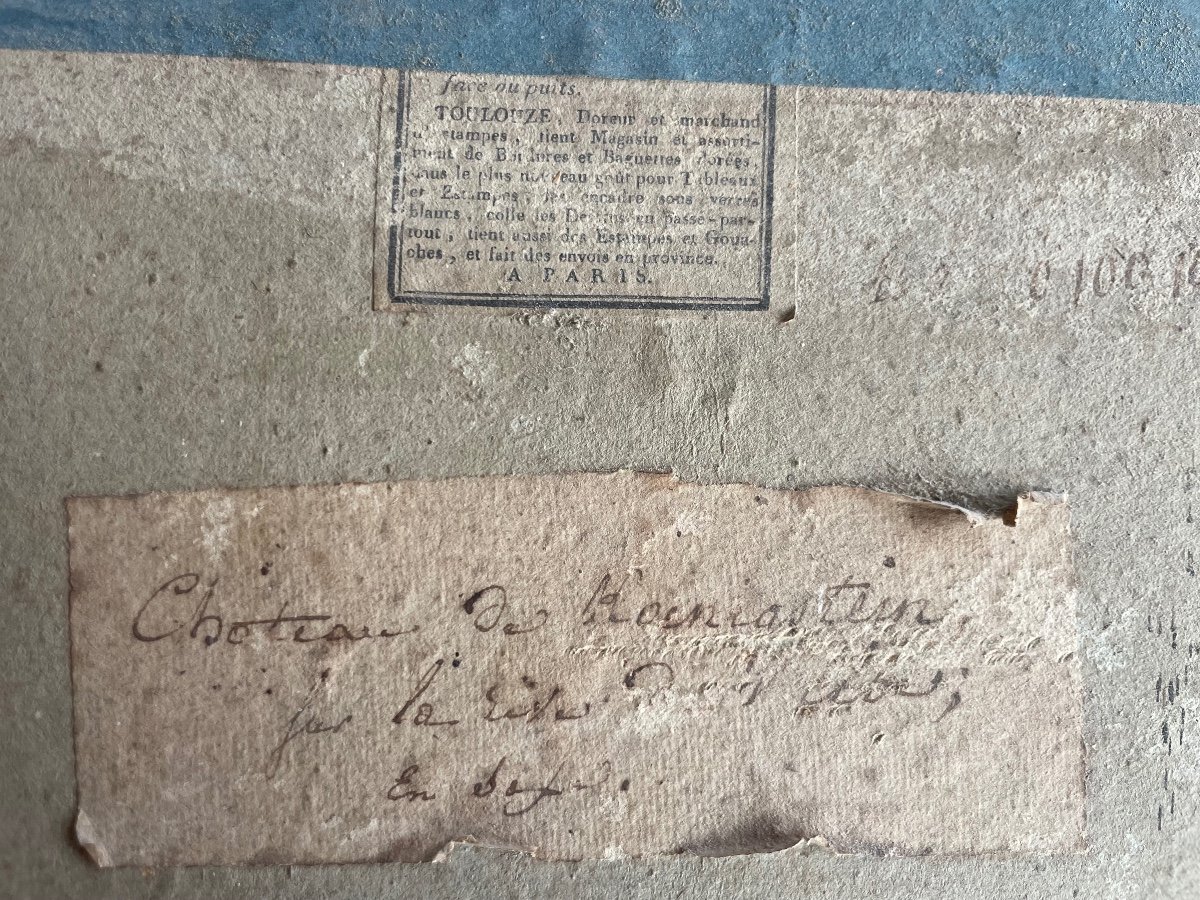 face ou puits.
TOULOUZE, Doreur et marchand
d'Estampes, tient Magasin et assorti-
ment de Bordures et Baguettes dorées,
dans le plus nouveau goût pour Tableaux
et Estampes, les encadre sous verres
blancs, colle les Dessins en passe-par-
tout, tient aussi des Estampes et Goua-
ches, et fait des envois en province.
A PARIS.
100
Château de
sur la rive
En Saxe.